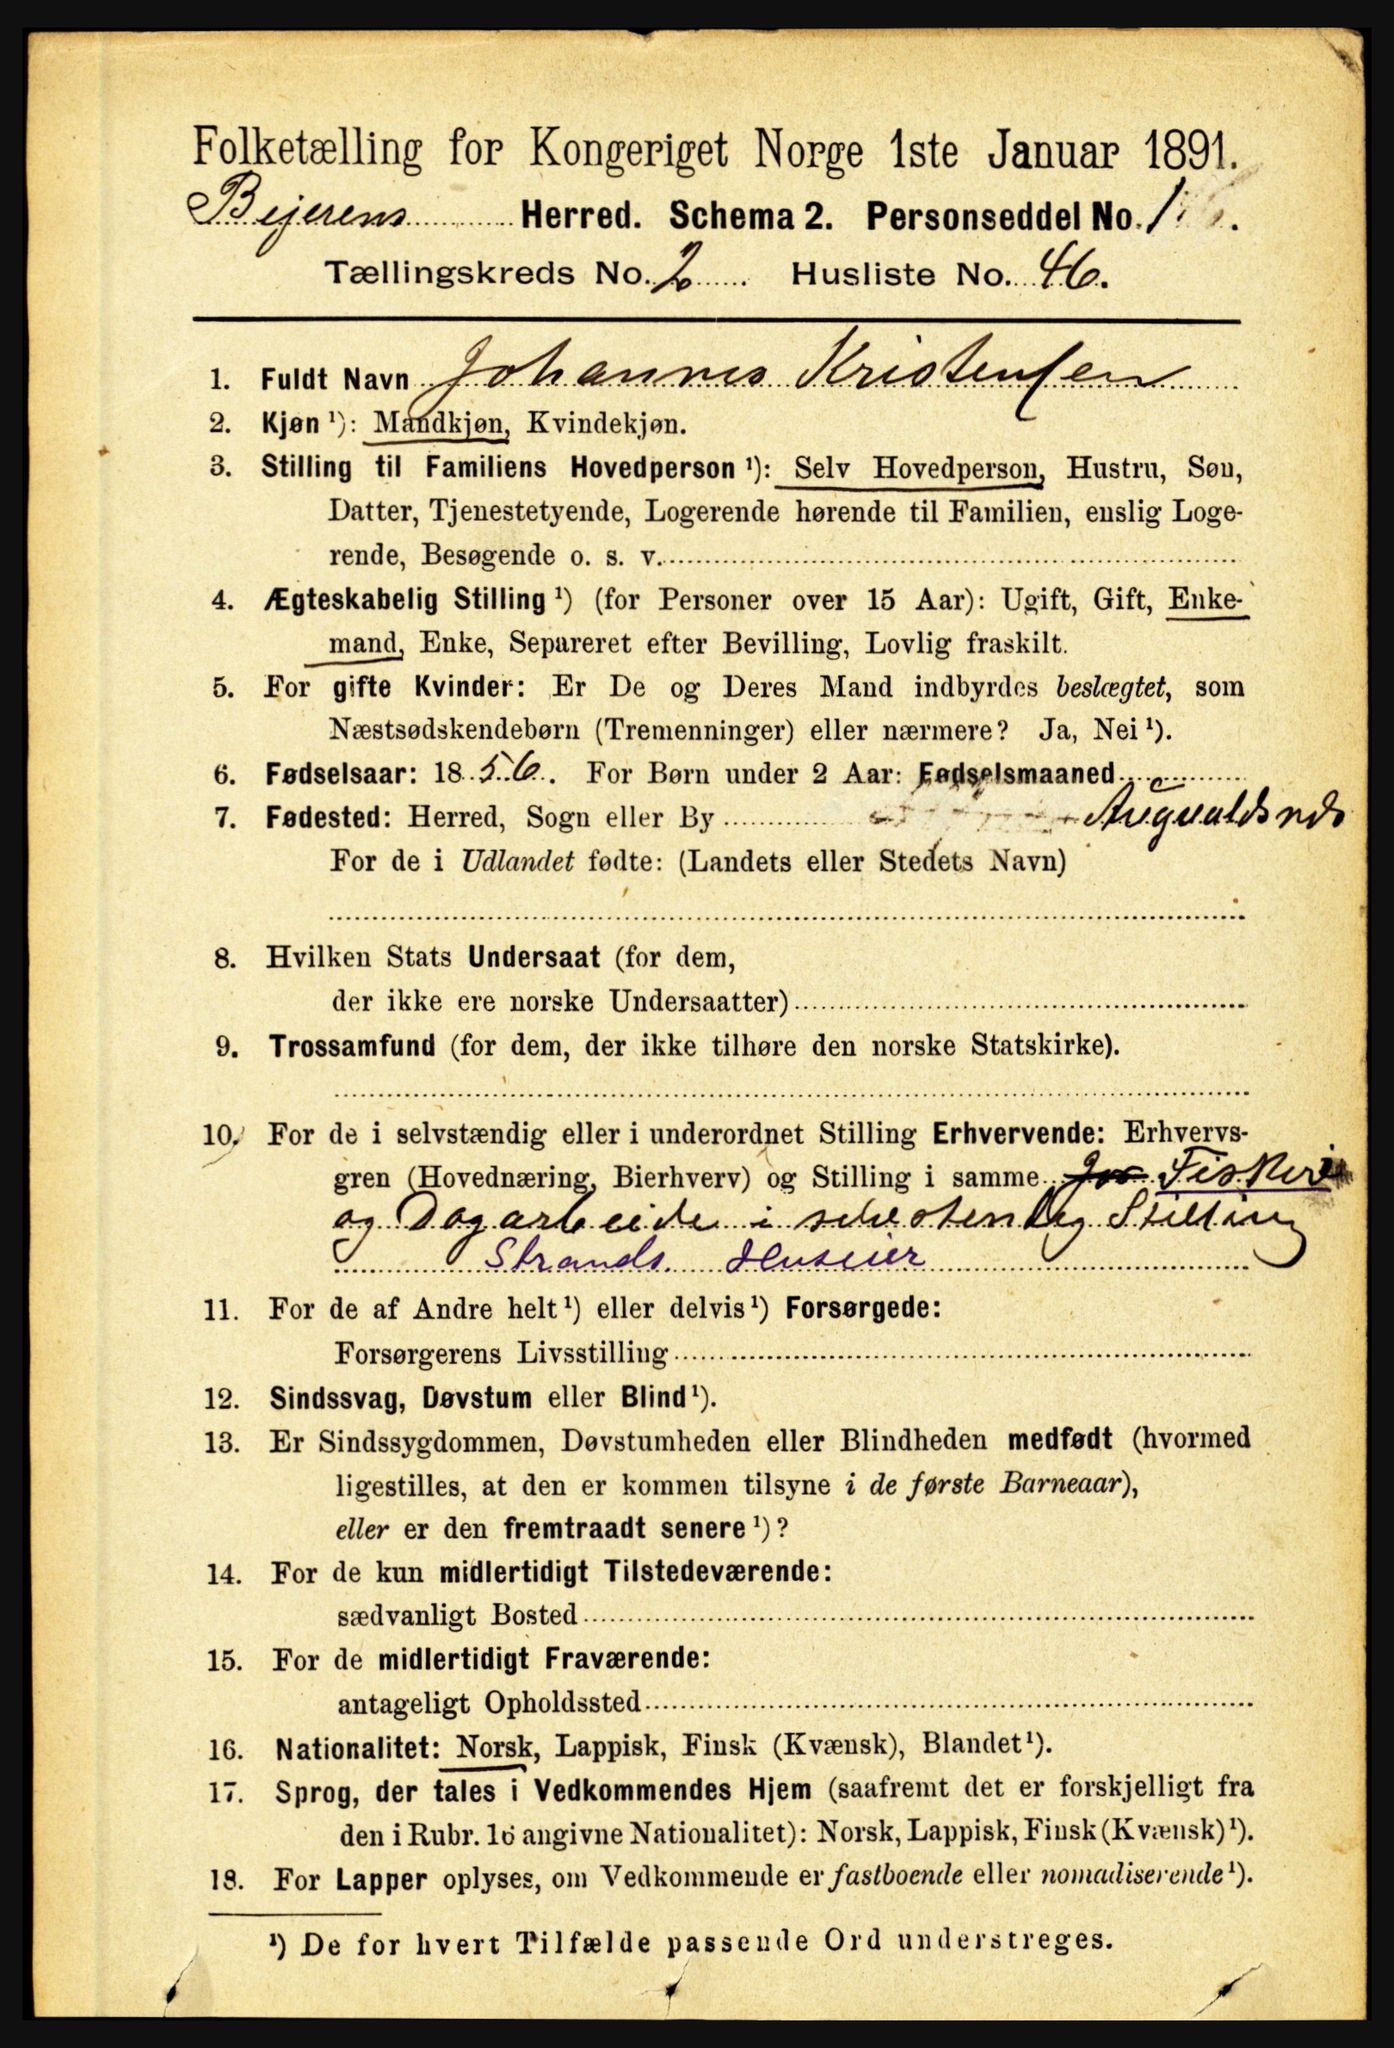 Folketælling for Kongeriget Norge 1ste Januar 1891.
Bejerens Herred. Schema 2. Personseddel No. 1
Tællingskreds No. 2 Husliste No. 46.
1. Fuldt Navn Johannes Kristensen
2. Kjøn ¹): Mandkjøn, Kvindekjøn.
3. Stilling til Familiens Hovedperson ¹): Selv Hovedperson, Hustru, Søn,
Datter, Tjenestetyende, Logerende hørende til Familien, enslig Loge-
rende, Besøgende o. s. v.
4. Ægteskabelig Stilling ¹) (for Personer over 15 Aar): Ugift, Gift, Enke-
mand, Enke, Separeret efter Bevilling, Lovlig fraskilt.
5. For gifte Kvinder: Er De og Deres Mand indbyrdes beslægtet, som
Næstsødskendebørn (Tremenninger) eller nærmere? Ja, Nei ¹).
6. Fødselsaar: 1856. For Børn under 2 Aar: Fødselsmaaned
7. Fødested: Herred, Sogn eller By Augvaldsnds
For de i Udlandet fødte: (Landets eller Stedets Navn)
8. Hvilken Stats Undersaat (for dem,
der ikke ere norske Undersaatter)
9. Trossamfund (for dem, der ikke tilhøre den norske Statskirke).
10. For de i selvstændig eller i underordnet Stilling Erhvervende: Erhvervs-
gren (Hovednæring, Bierhverv) og Stilling i samme Jor Fiskeri
og Dagarbeide i selvstendig Stilling
Strands. Huseier
11. For de af Andre helt ¹) eller delvis ¹) Forsørgede:
Forsørgerens Livsstilling
12. Sindssvag, Døvstum eller Blind ¹).
13. Er Sindssygdommen, Døvstumheden eller Blindheden medfødt (hvormed
ligestilles, at den er kommen tilsyne i de første Barneaar),
eller er den fremtraadt senere ¹)?
14. For de kun midlertidigt Tilstedeværende:
sædvanligt Bosted
15. For de midlertidigt Fraværende:
antageligt Opholdssted
16. Nationalitet: Norsk, Lappisk, Finsk (Kvænsk), Blandet ¹).
17. Sprog, der tales i Vedkommendes Hjem (saafremt det er forskjelligt fra
den i Rubr. 16 angivne Nationalitet): Norsk, Lappisk, Finsk (Kvænsk) ¹).
18. For Lapper oplyses, om Vedkommende er fastboende eller nomadiserende ¹).
¹) De for hvert Tilfælde passende Ord understreges.